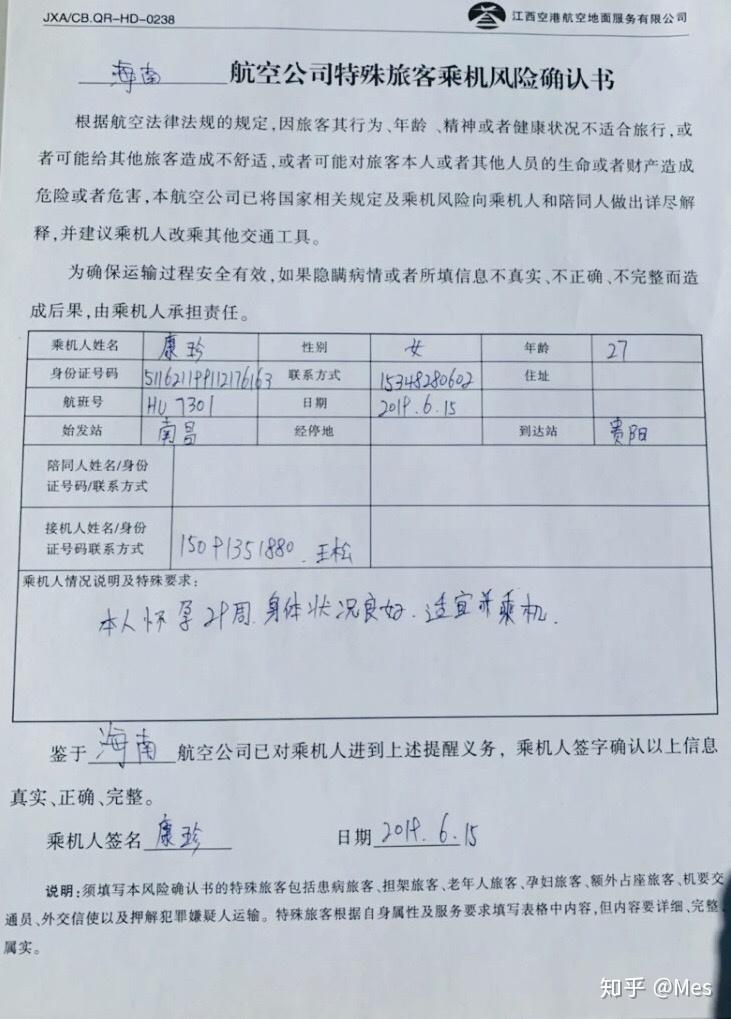 JXA/CB.QR-HD-0238 江西空港航空地面服务有限公司
海南 航空公司特殊旅客乘机风险确认书
根据航空法律法规的规定,因旅客其行为、年龄、精神或者健康状况不适合旅行,或
者可能给其他旅客造成不舒适,或者可能对旅客本人或者其他人员的生命或者财产造成
危险或者危害,本航空公司已将国家相关规定及乘机风险向乘机人和陪同人做出详尽解
释,并建议乘机人改乘其他交通工具。
为确保运输过程安全有效,如果隐瞒病情或者所填信息不真实、不正确、不完整而造
成后果,由乘机人承担责任。
乘机人姓名 康珍 性别 女 年龄 27
身份证号码 511621199112176163 联系方式 15348280602 住址
航班号 HU 7301 日期 2019.6.15
始发站 南昌 经停地 到达站 贵阳
陪同人姓名/身份
证号码/联系方式
接机人姓名/身份
证号码联系方式 15091351880 . 王松
乘机人情况说明及特殊要求:
本人怀孕29周.身体状况良好.适宜乘机.
鉴于 海南 航空公司已对乘机人进到上述提醒义务,乘机人签字确认以上信息
真实、正确、完整。
乘机人签名 康珍 日期 2019.6.15
说明:须填写本风险确认书的特殊旅客包括患病旅客、担架旅客、老年人旅客、孕妇旅客、额外占座旅客、机要交
通员、外交信使以及押解犯罪嫌疑人运输。特殊旅客根据自身属性及服务要求填写表格中内容,但内容要详细、完整、
属实。
知乎 @Mes